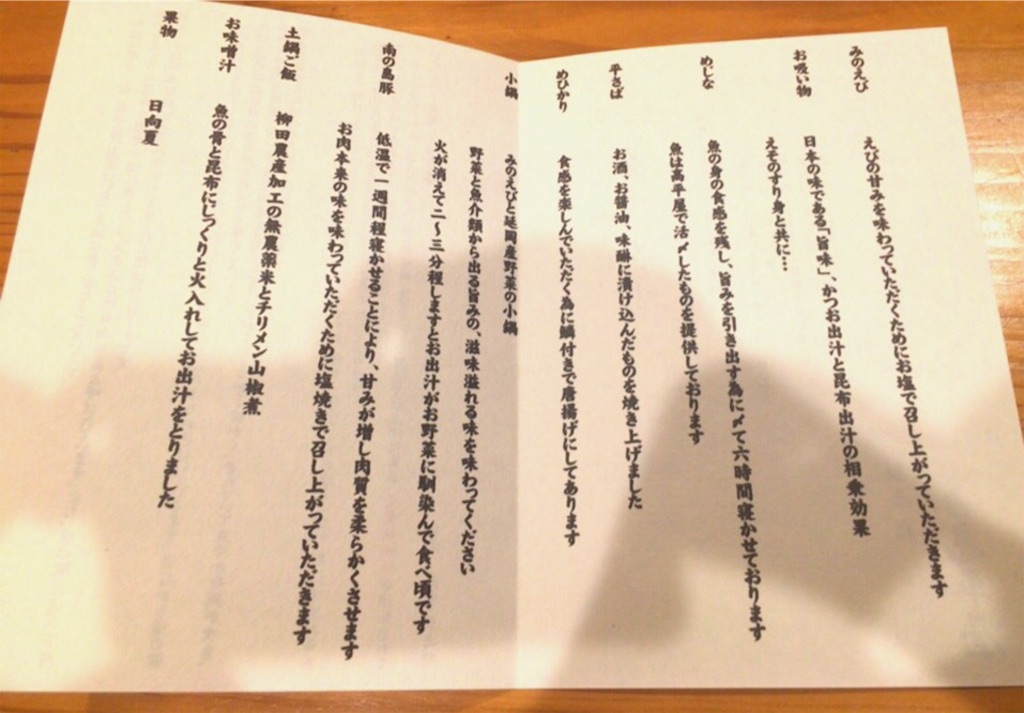 みのえび
えびの甘みを味わっていただくためにお塩で召し上がっていただきます
お吸い物
日本の味である「旨味」、かつお出汁と昆布出汁の相乗効果
えそのすり身と共に…
めじな
魚の身の食感を残し、旨みを引き出す為に〆て六時間寝かせております
魚は高平屋で活〆したものを提供しております
平さば
お酒、お醤油、味醂に漬け込んだものを焼き上げました
めひかり
食感を楽しんでいただく為に鱗付きで唐揚げにしてあります
小鍋
みのえびと延岡産野菜の小鍋
野菜と魚介類から出る旨みの、滋味溢れる味を味わってください
火が消えて二〜三分程しますとお出汁がお野菜に馴染んで食べ頃です
南の島豚
低温で一週間程寝かせることにより、甘みが増し肉質を柔らかくさせます
お肉本来の味を味わっていただくために塩焼きで召し上がっていただきます
土鍋ご飯
柳田農産加工の無農薬米とチリメン山椒煮
お味噌汁
魚の骨と昆布にじっくりと火入れしてお出汁をとりました
果物
日向夏